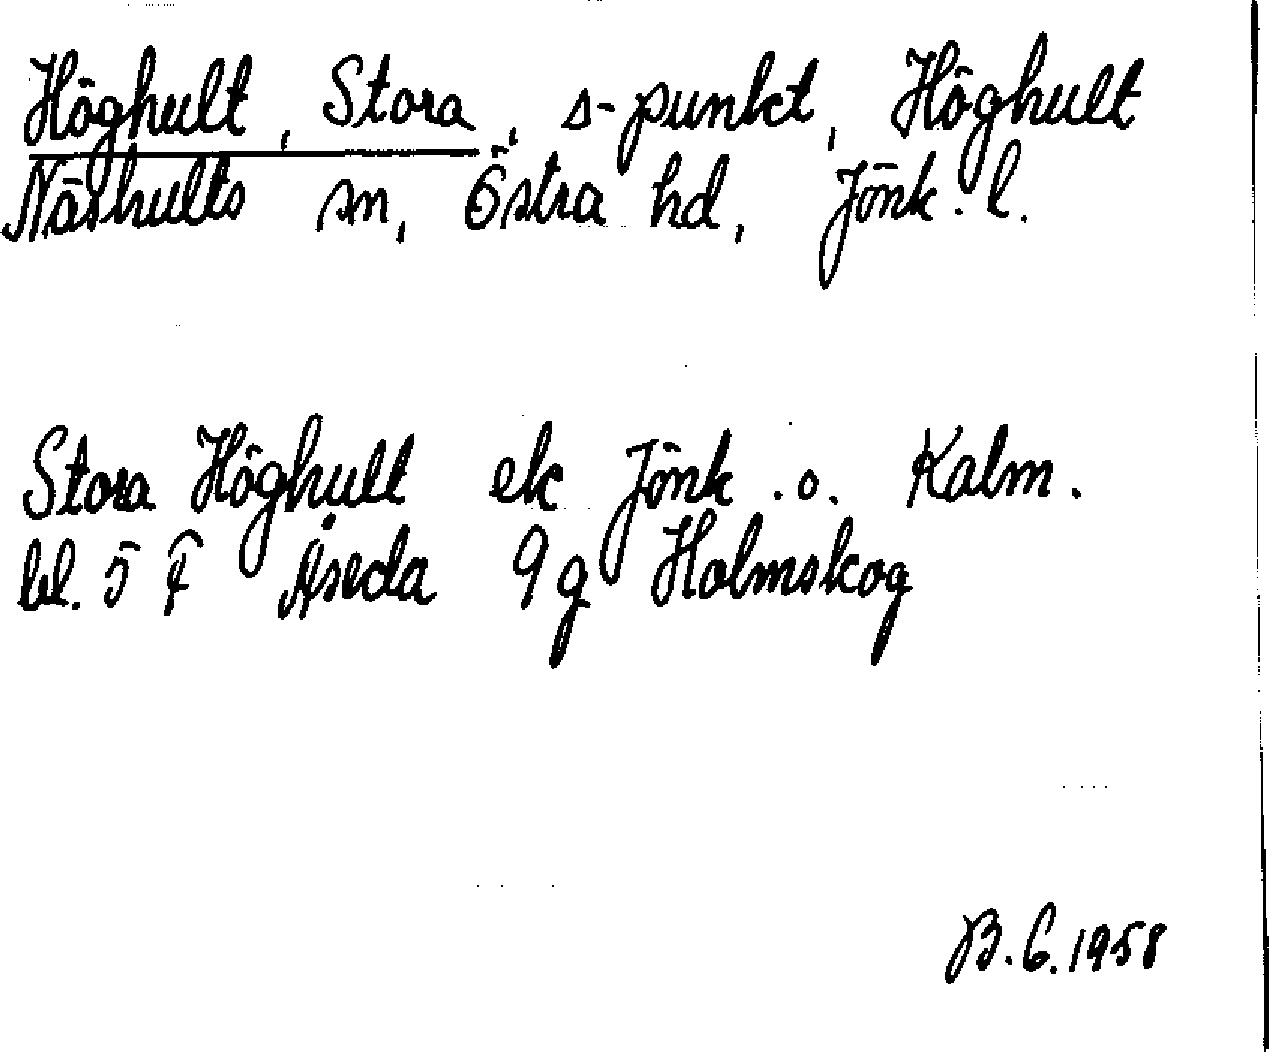 Höghult, Stora, s-punkt, Höghult
Näshults sn, Östra hd, Jönk. l.
Stora Höghult ek Jönk. o. Kalm.
bl. 5 F Åseda 9 g Holmskog
B. G. 1958